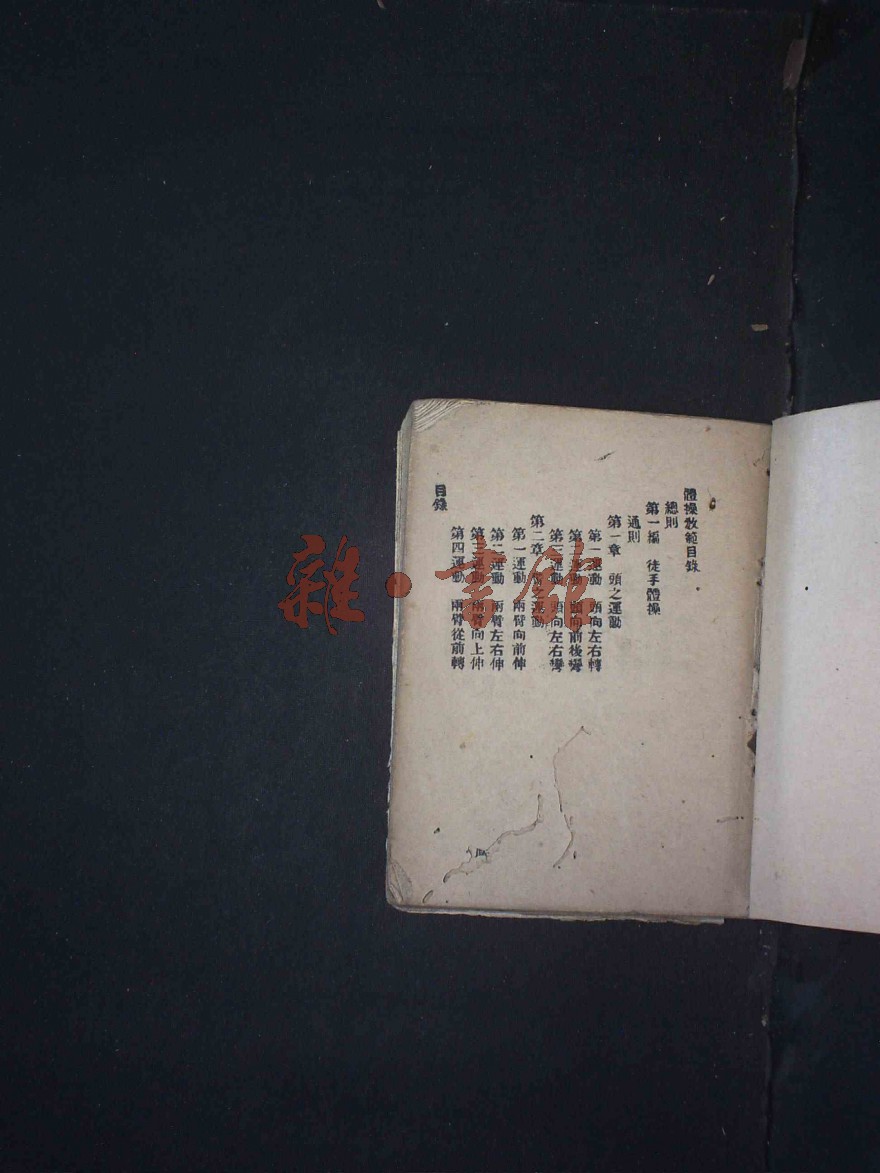 體操教範目錄
總則
第一編　徒手體操
通則
第一章　頭之運動
第一運動　頭向左右轉
第二運動　頭向前後彎
第三運動　頭向左右彎
第二章　臂之運動
第一運動　兩臂向前伸
第二運動　兩臂左右伸
第三運動　兩臂向上伸
第四運動　兩臂從前轉
目錄
雜·書館